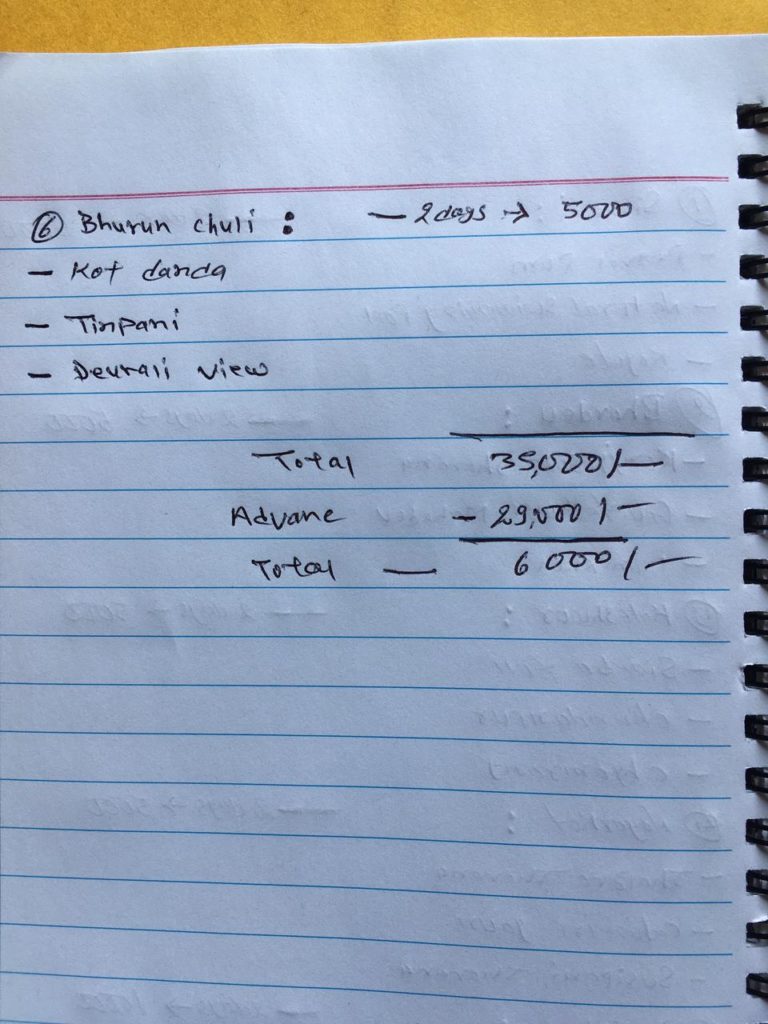 ⑥ Bhurun chuli : — 2 days → 5000
— Kot danda
— Tinpani
— Deurali view
Total 35,000/—
Advane - 29,000/—
Total — 6000/—